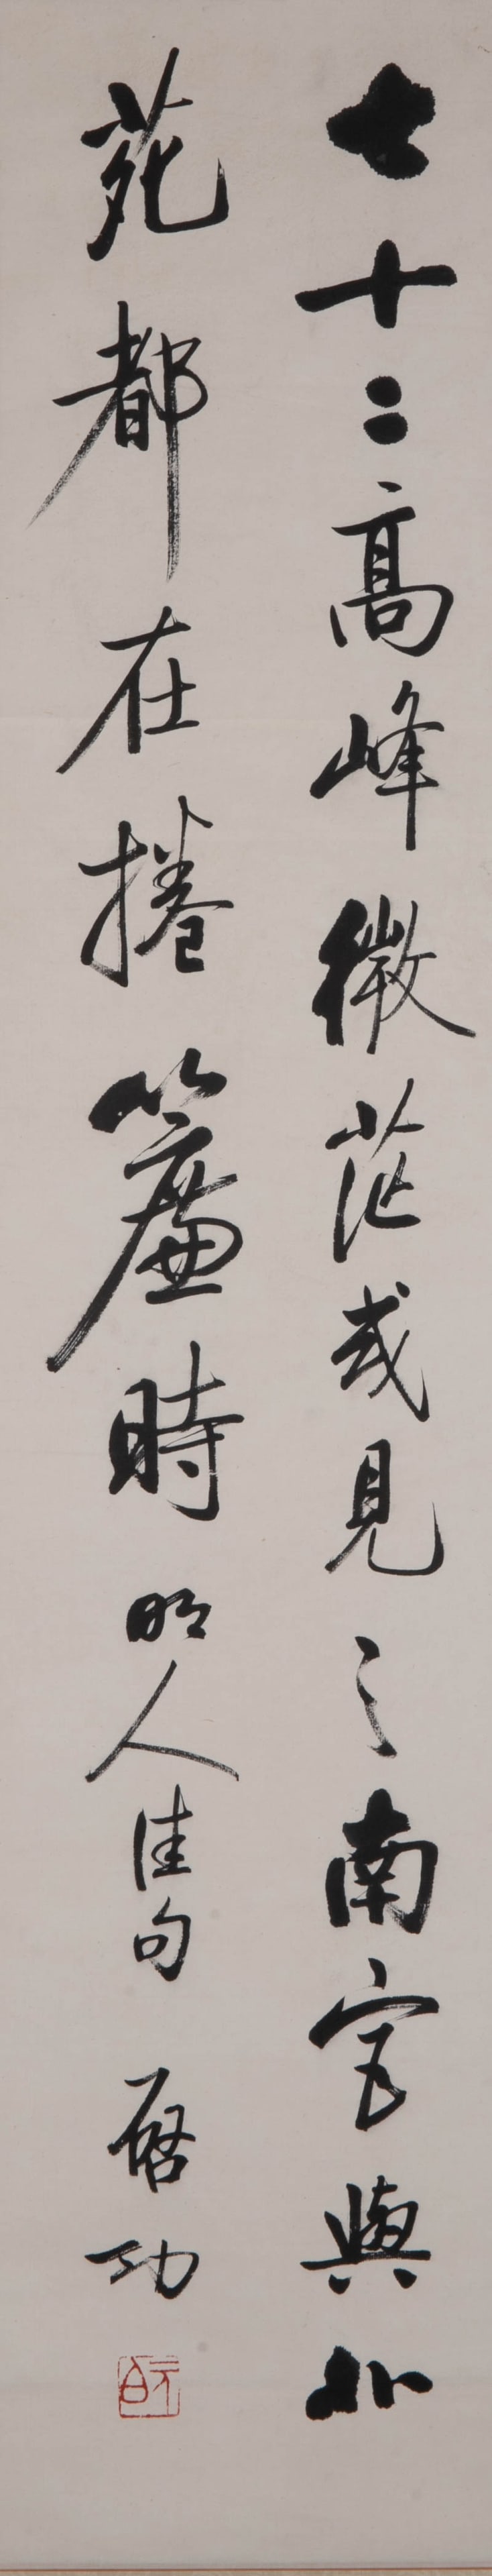 七十二高峰微茫或見之南宮與北
苑都在捲簾時 明人佳句 啓功
元白